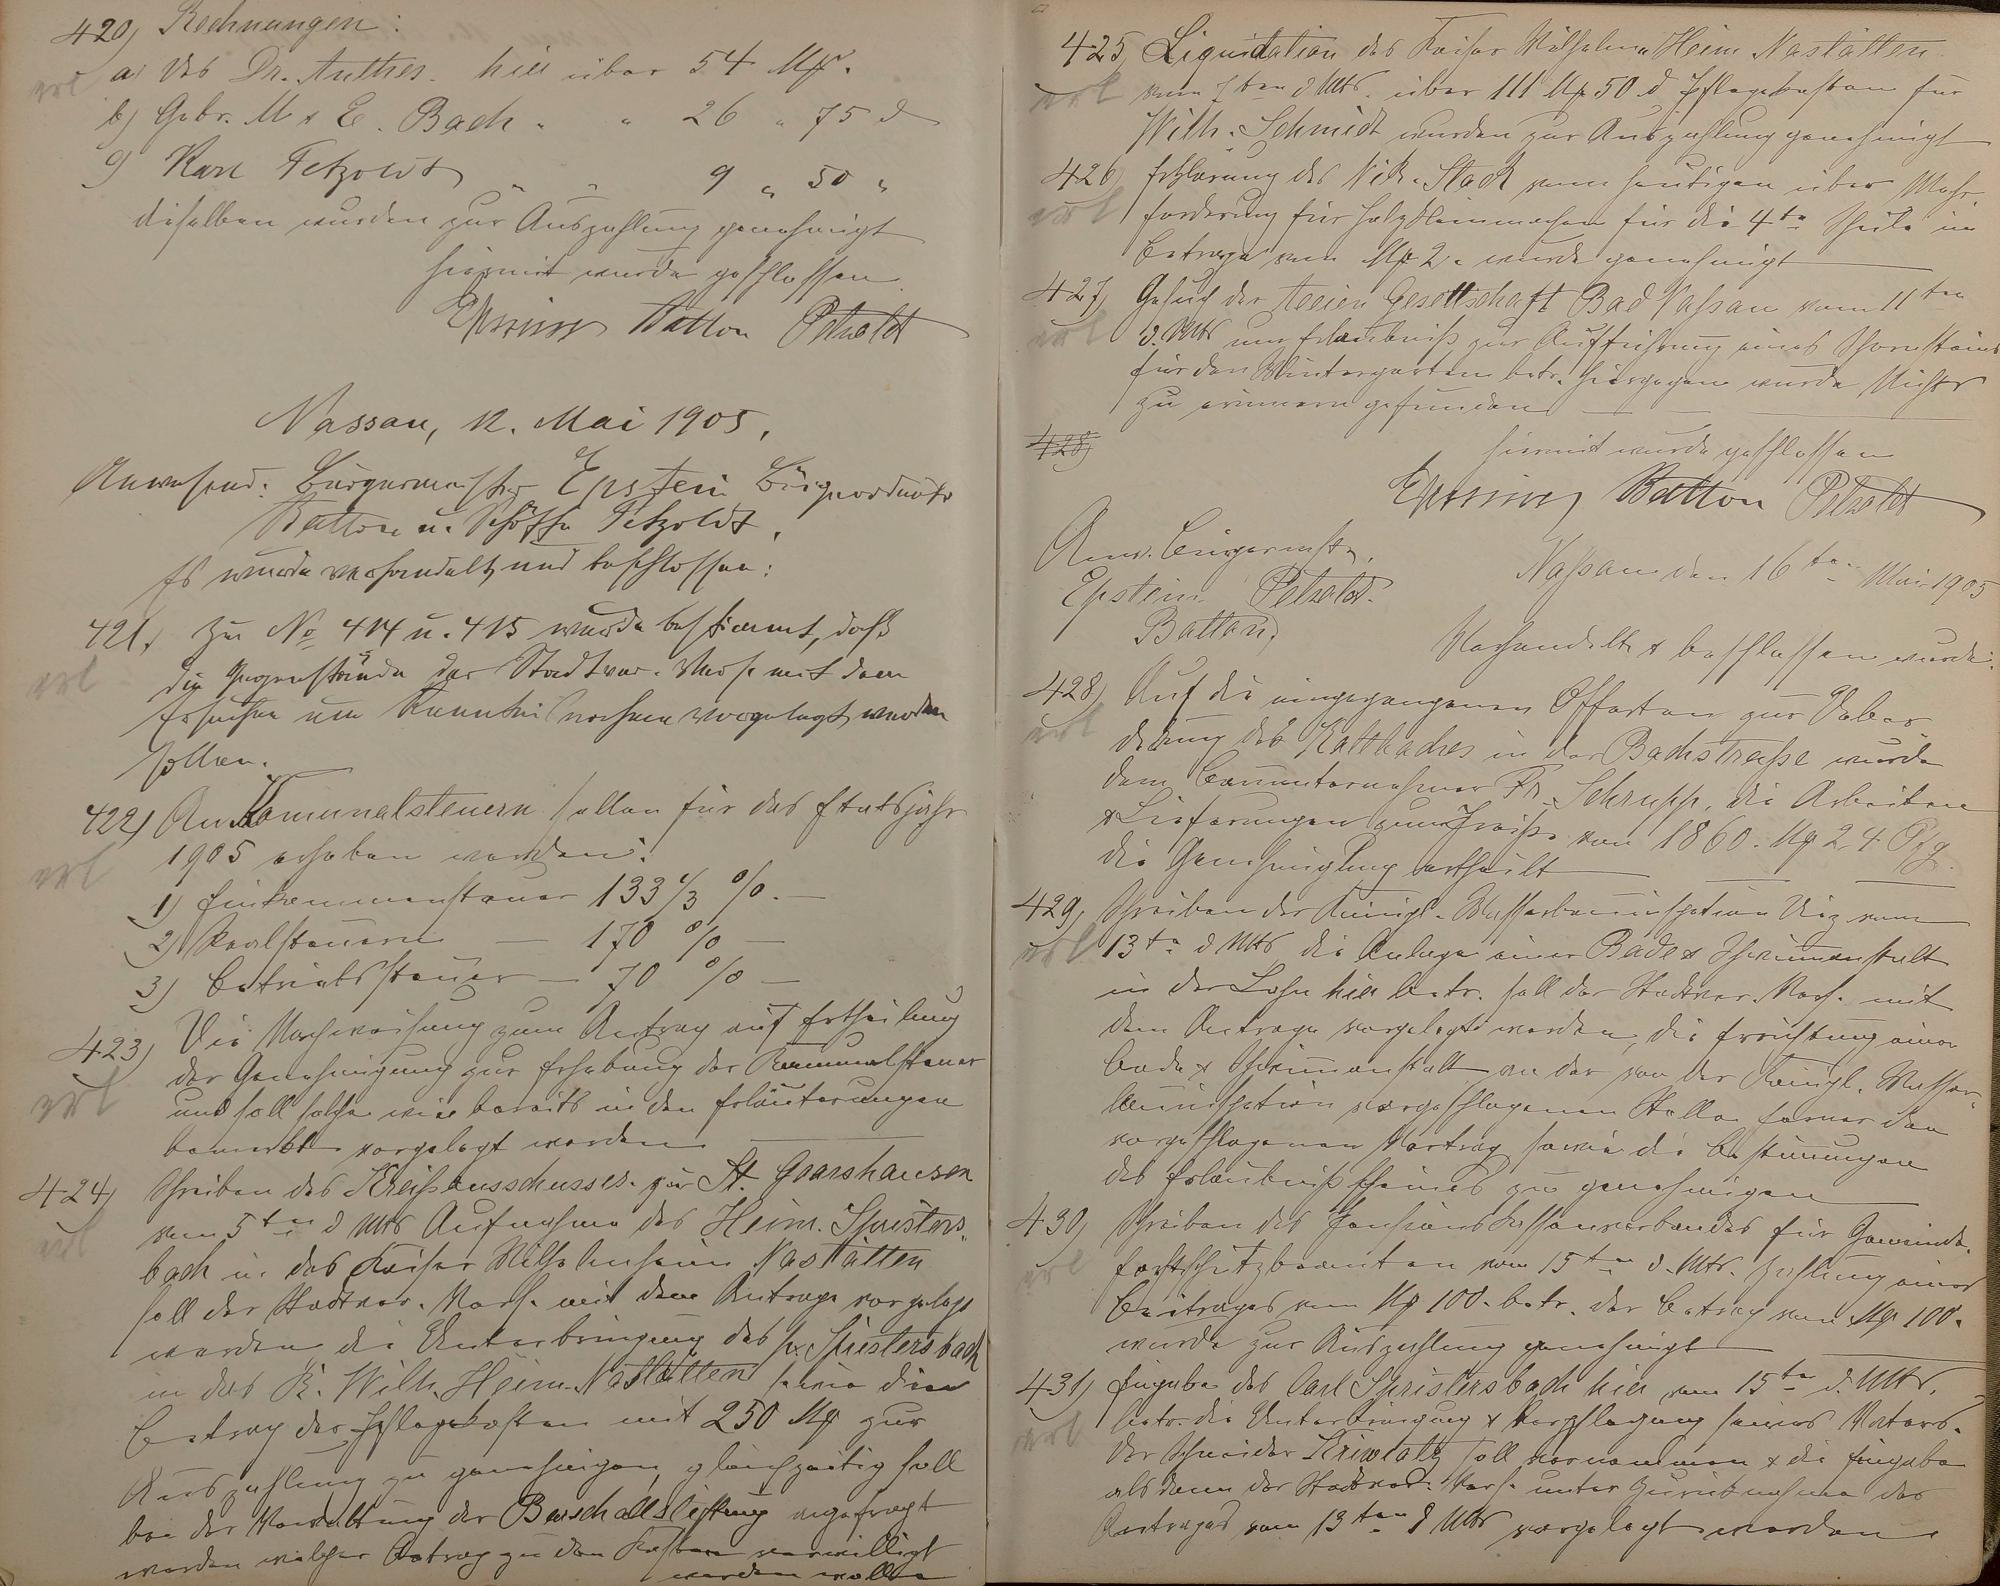 420, Rechnungen:
a) des Dr. Anthes. hier über 54 M.
erl
b) Gebr. M & E. Bach " " 26 " 75 d
c) Karl Petzoldt " " 9 " 50 "
dieselben wurden zur Auszahlung genehmigt
hiermit wurde geschlossen
Epstein Batton Petzoldt
Nassau, 12. Mai 1905.
Anwesend: Bürgermeister Epstein Beigeordneter
Batton u. Schöffe Petzoldt.
Es wurde verhandelt und beschlossen:
421, Zu No 414 u. 415 wurde bestimmt, daß
die Gegenstände der Stadtver. Vers. mit dem
erl
Ersuchen um Kenntnisnahme vorgelegt werden
sollen.
422) An Komunalsteuern sollen für das Etatsjahr
1905 erhoben werden:
erl
1) Einkommensteuer 133 1/3 %. —
2) Realsteuern — 170 % —
3) Betriebssteuer — 70 % —
423) Die Nachweisung zum Antrag auf Ertheilung
der Genehmigung zur Erhebung der Kommunalsteuer
erl
und soll solche wie bereits in den Erläuterungen
bemerkt vorgelegt werden
424) Schreiben des Kreisausschusses zu St. Goarshausen
vom 5ten d Mts Aufnahme des Heinr. Spristers-
erl
bach in das Kaiser Wilhelmheim Nastätten
soll der Stadtver. Vers. mit dem Antrage vorgelegt
werden die Unterbringung des p. Spristersbach
in das K. Wilh. Heim Nastätten sowie den
Betrag der Pflegekosten mit 250 M zur
Auszahlung zu genehmigen, gleichzeitig soll
bei der Verwaltung der Buschallstiftung angefragt
werden welcher Betrag zu den Kosten verwilligt
werden wolle
425, Liquidation des Kaiser Wilhelm Heim Nastätten
vom 7ten d Mts. über 111 M 50 d Pflegekosten für
erl
Wilh. Schmidt wurden zur Auszahlung genehmigt
426) Erklärung des Nik. Stach vom heutigen über Mehr-
forderung für Holzkleinmachen für die 4te Schule im
erl
Betrage von M 2. wurde genehmigt
427, Gesuch der Actien Gesellschaft Bad Nassau vom 11ten
d. Mts um Erlaubniß zur Aufführung eines Schornsteins
erl
für den Wintergarten betr. hiergegen wurde Nichts
zu erinnern gefunden
428)
hiermit wurde geschlossen
Epstein Batton Petzoldt
Anw. Bürgermstr.
Epstein Petzoldt.
Batton,
Nassau den 16ten Mai 1905
Verhandelt & beschlossen wurde:
428, Auf die eingegangenen Offerten zur Ueber-
deckung des Kaltbaches in der Bachstraße wurde
erl
dem Bauunternehmer Fr. Schrupp, die Arbeiten
& Lieferungen zum Preise von 1860. M 24 Pfg.
die Genehmigung ertheilt
429, Schreiben der Königl. Wasserbauinspektion Diez vom
13ten d Mts die Anlage einer Bade & Schwimmanstalt
erl
in der Lahn hier betr. soll der Stadtver. Vers. mit
dem Antrage vorgelegt werden, die Errichtung einer
Bade & Schwimmanstalt an der von der Königl. Wasser-
bauinspektion vorgeschlagenen Stelle ferner den
vorgeschlagenen Vertrag sowie die Bestimmungen
des Erlaubnißscheines zu genehmigen
430, Schreiben des Pensionskassenverbandes für Gemeinde-
forstschutzbeamten vom 15ten d. Mts. Zahlung eines
erl
Beitrages von M 100. betr. der Betrag von M 100.
wurde zur Auszahlung genehmigt
431, Eingabe des Carl Spristersbach hier vom 15ten d. Mts.
betr. die Unterbringung & Verpflegung seines Vaters.
erl
Der Schneider soll vernommen & die Eingabe
alsdann der Stadtver. Vers. unter Zurücknahme des
Antrages vom 13ten d Mts vorgelegt werden